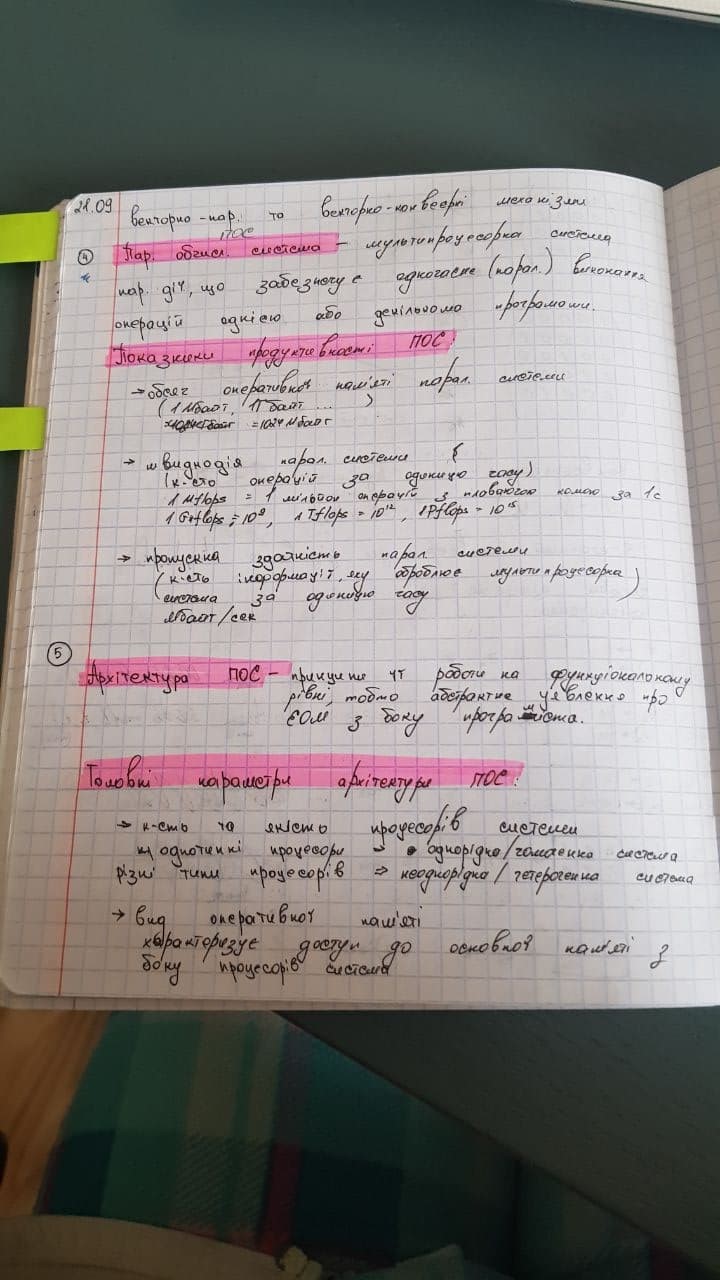 21.09
векторно-пар. та векторно-конвеєрні механізми
ПОС
④ Пар. обчисл. система – мультипроцесорна система
пар. дії, що забезпечує одночасне (парал.) виконання
операцій однією або декількома програмами.
Показники продуктивності ПОС:
→ обсяг оперативної пам'яті парал. системи
(1 Мбайт, 1 Гбайт ... )
= 1024 Мбайт
→ швидкодія парал. системи {
(к-сть операцій за одиницю часу)
1 Mflops = 1 мільйон операцій з плаваючою комою за 1с
1 Gflops = 10⁹, 1 Tflops = 10¹², 1 Pflops = 10¹⁵
→ пропускна здатність парал. системи
(к-сть інформації, яку обробляє мультипроцесорна
система за одиницю часу)
Мбайт/сек
⑤
Архітектура ПОС – принципи її роботи на функціональному
рівні, тобто абстрактне уявлення про
ЕОМ з боку програміста.
Головні параметри архітектури ПОС:
→ к-сть та якість процесорів системи
однотипні процесори → однорідна/гомогенна система
різні типи процесорів ⇒ неоднорідна/гетерогенна система
→ вид оперативної пам'яті
характеризує доступ до основної пам'яті з
боку процесорів система